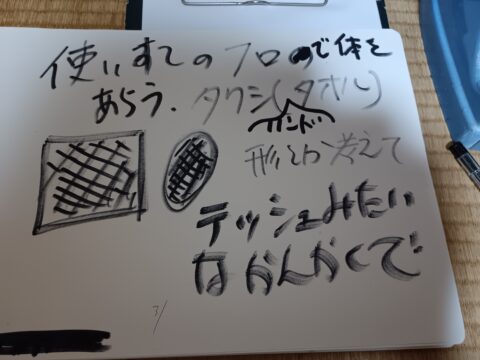 使いすての フロので体を
あらう. タクシ(タオル)
ハンド
形とか考えて
テッシュみたい
なかんかくで